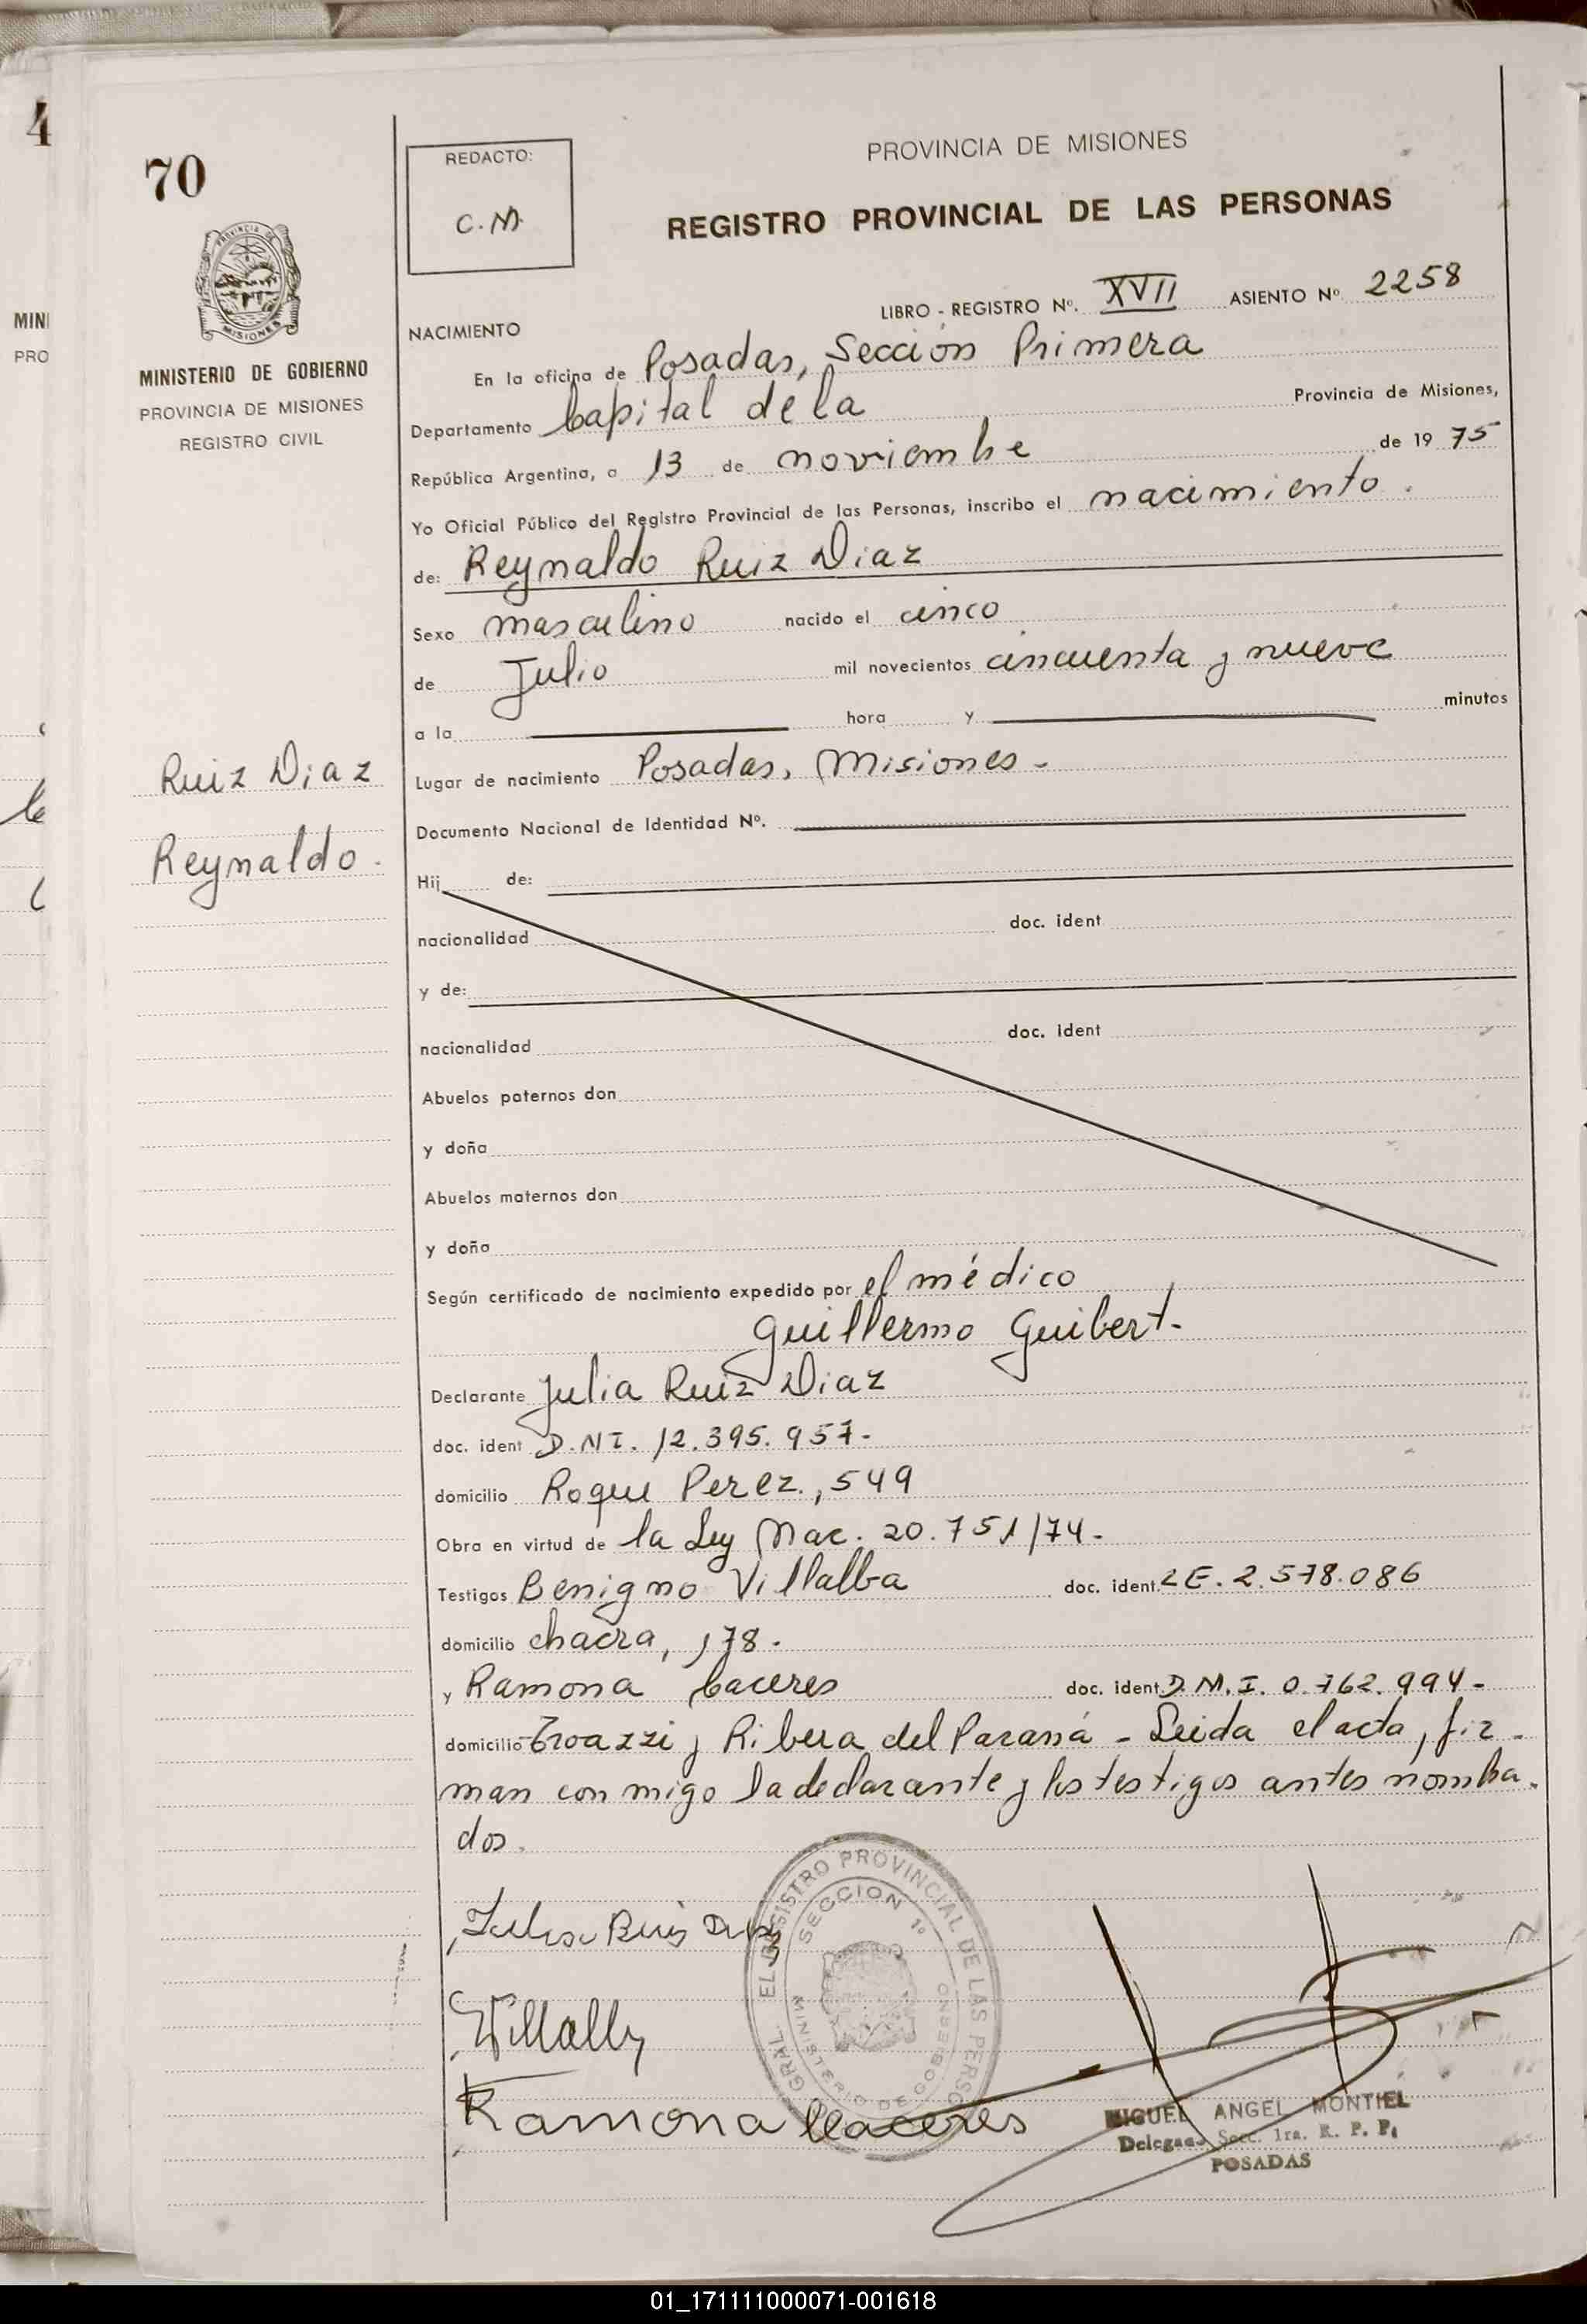 4
70
REDACTO:
C.M.
PROVINCIA DE MISIONES
REGISTRO PROVINCIAL DE LAS PERSONAS
LIBRO - REGISTRO Nº. XVII ASIENTO Nº 2258
MINI
PRO
MISIONES
MINISTERIO DE GOBIERNO
PROVINCIA DE MISIONES
REGISTRO CIVIL
NACIMIENTO
En la oficina de Posadas, Sección Primera
Departamento Capital de la Provincia de Misiones,
República Argentina, a 13 de noviembre de 19 75
Yo Oficial Público del Registro Provincial de las Personas, inscribo el nacimiento.
de: Reynaldo Ruiz Diaz
Sexo masculino nacido el cinco
de Julio mil novecientos cincuenta y nueve
a la hora y minutos
Ruiz Diaz
Reynaldo.
Lugar de nacimiento Posadas, Misiones -
Documento Nacional de Identidad Nº.
Hij de:
nacionalidad doc. ident
y de:
nacionalidad doc. ident
Abuelos paternos don
y doña
Abuelos maternos don
y doña
Según certificado de nacimiento expedido por el médico
Guillermo Guibert-
Declarante Julia Ruiz Diaz
doc. ident D.N I. 12.395.957-
domicilio Roque Perez., 549
Obra en virtud de la Ley Nac. 20.751/74-
Testigos Benigno Villalba doc. ident. LE. 2.578.086
domicilio chacra, 178.
y Ramona Caceres doc. ident D.N.I. 0.762.994-
domicilio y Ribera del Paraná - Leida el acta, fir-
man con migo la declarante y los testigos antes nombra-
dos.
Ruis
Villalb
Ramona Caceres
GRAL. EL REGISTRO PROVINCIAL DE LAS PERSO
SECCION 1º
MINISTERIO DE GOBIERNO
MIGUEL ANGEL MONTIEL
Delegado Secc. 1ra. R. P. P.
POSADAS
01_171111000071-001618